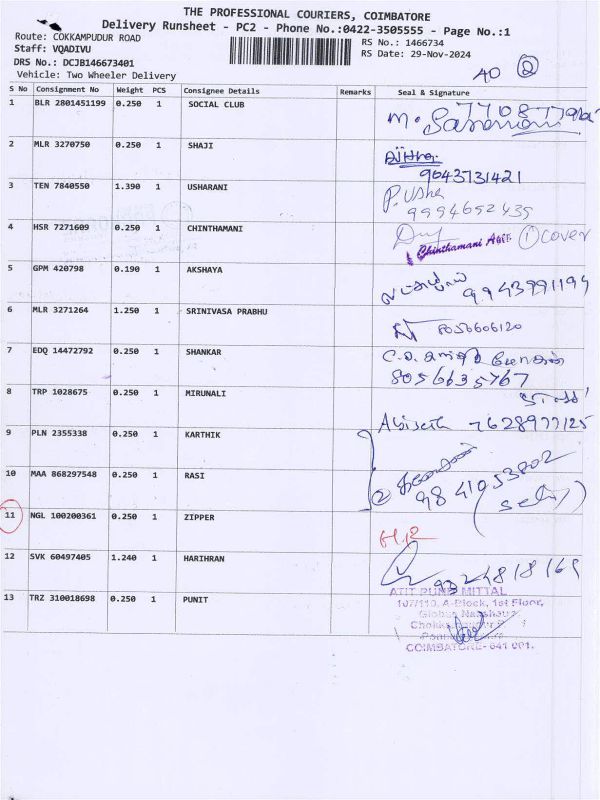 THE PROFESSIONAL COURIERS, COIMBATORE
Delivery Runsheet - PC2 - Phone No.:0422-3505555 - Page No.:1
Route: COKKAMPUDUR ROAD
Staff: VQADIVU
DRS No.: DCJB146673401
Vehicle: Two Wheeler Delivery
RS No.: 1466734
RS Date: 29-Nov-2024
AO 2
S No Consignment No Weight PCS Consignee Details Remarks Seal & Signature
1 BLR 2801451199 0.250 1 SOCIAL CLUB
2 MLR 3270750 0.250 1 SHAJI
9043731421
3 TEN 7840550 1.390 1 USHARANI P. Usha
9994652435
4 HSR 7271609 0.250 1 CHINTHAMANI Chinthamani 1 cover
5 GPM 420798 0.190 1 AKSHAYA 9943991194
6 MLR 3271264 1.250 1 SRINIVASA PRABHU 8056606120
7 EDQ 14472792 0.250 1 SHANKAR
8056635767
8 TRP 1028675 0.250 1 MIRUNALI
7628977125
9 PLN 2355338 0.250 1 KARTHIK
10 MAA 868297548 0.250 1 RASI 2
9841053802
11 NGL 100200361 0.250 1 ZIPPER
12 SVK 60497405 1.240 1 HARIHRAN
13 TRZ 310018698 0.250 1 PUNIT
MITTAL
107/110, A-Block, 1st Floor,
COIMBATORE- 641 001.